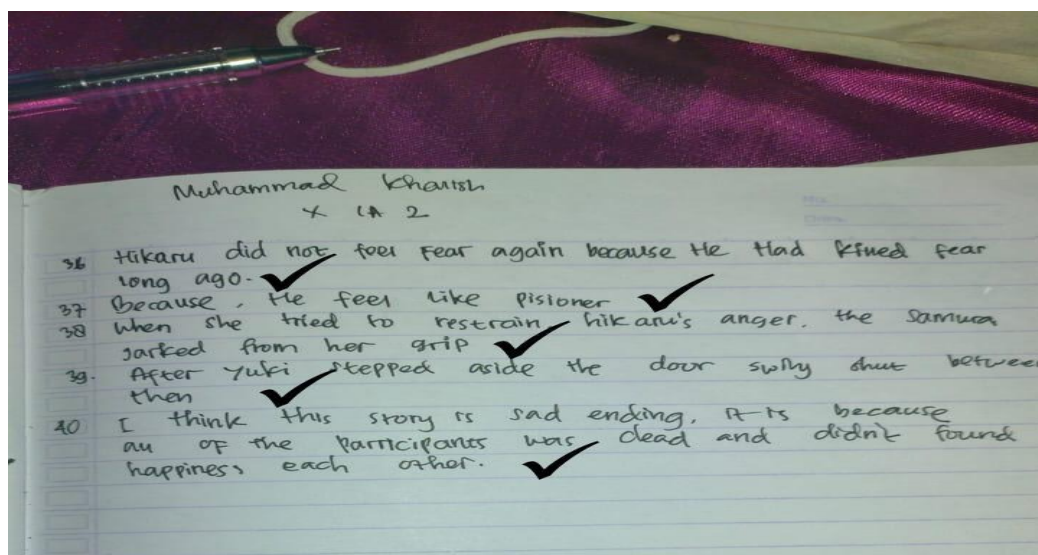 Muhammad Kharish
X IA 2
36 Hikaru did not feel Fear again because He Had killed fear
long ago.
37 Because, He feel like pisioner
38 When she tried to restrain hikaru's anger. the Samura
jarked from her grip
39. After Yuki stepped aside the door swlly shut between
then
40 I think this story is sad ending, it is because
all of the participants was dead and didn't found
happiness each other.